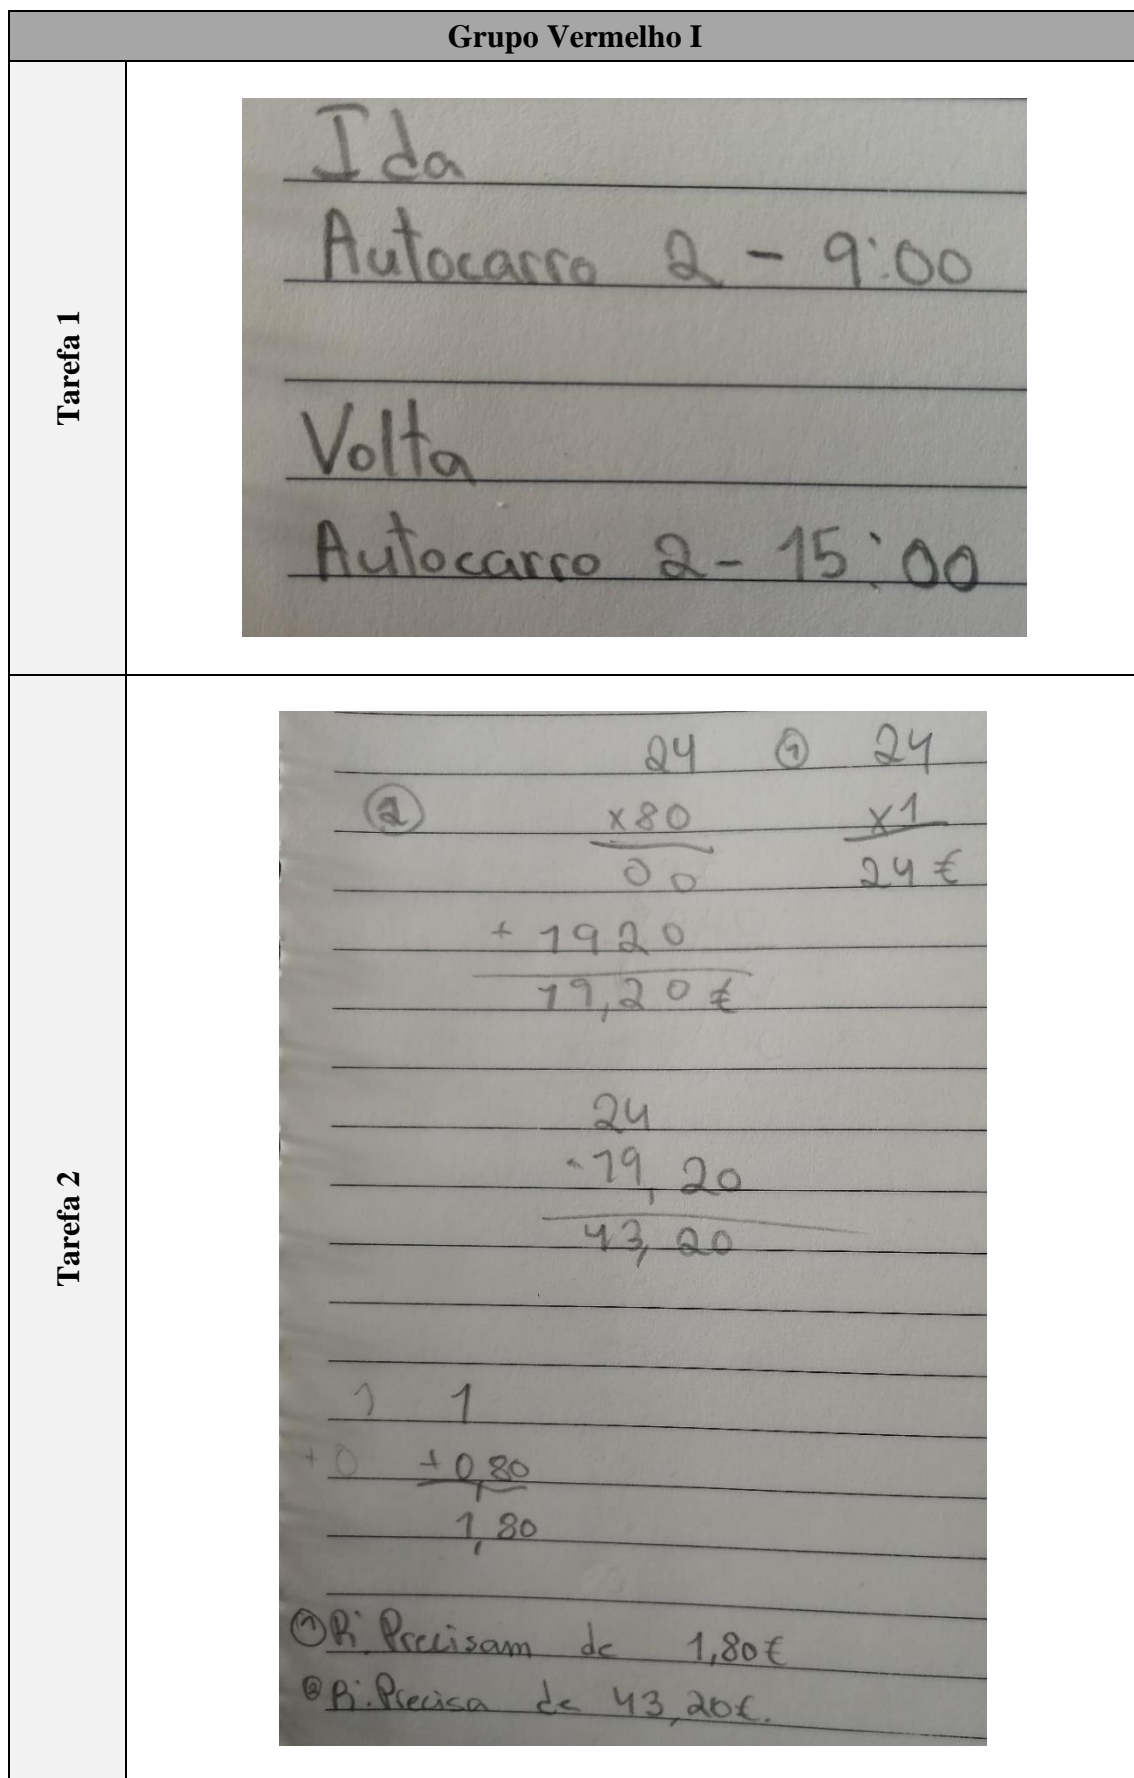 Grupo Vermelho I
Tarefa 1
Ida
Autocarro 2 - 9:00
Volta
Autocarro 2 - 15:00
Tarefa 2
24 ① 24
② x80 x1
00 24€
+ 1920
19,20€
24
-19,20
43,20
1 1
+0 +0,80
1,80
① R: Precisam de 1,80€
② R: Precisa de 43,20€.